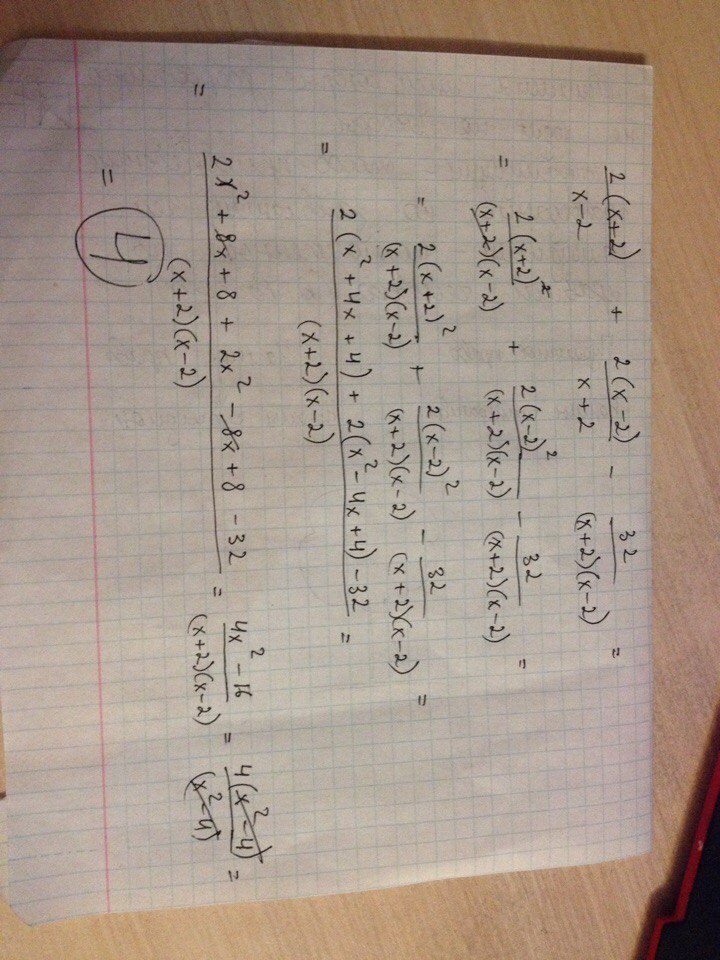 2(x+2)/x-2 + 2(x-2)/x+2 - 32/(x+2)(x-2) =
= 2(x+2)²/(x+2)(x-2) + 2(x-2)²/(x+2)(x-2) - 32/(x+2)(x-2) =
= 2(x+2)²/(x+2)(x-2) + 2(x-2)²/(x+2)(x-2) - 32/(x+2)(x-2) =
= 2(x²+4x+4)+2(x²-4x+4)-32/(x+2)(x-2) =
= 2x²+8x+8+2x²-8x+8-32/(x+2)(x-2) = 4x²-16/(x+2)(x-2) = 4(x²-4)/(x²-4) =
= 4